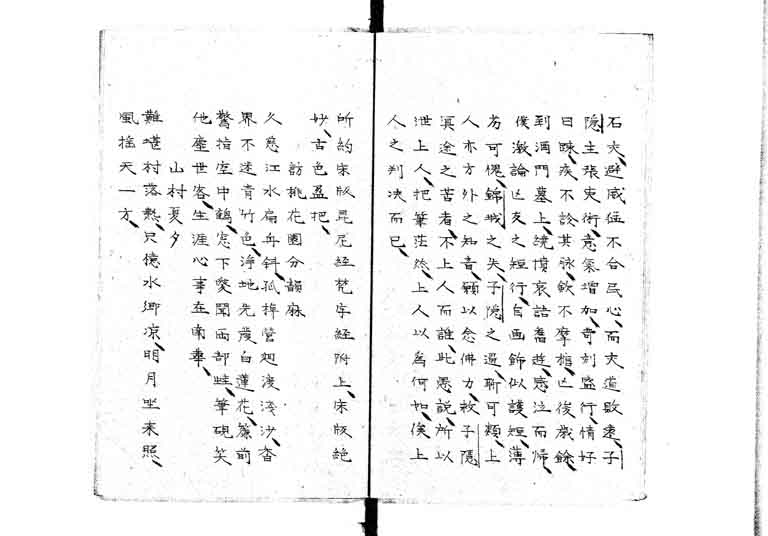 石夾避威征不合民心而夾道敗走子
隱主張吏術意氣增加奇刻盛行情好
日睽疾不診其脉歛不摩棺亡後歲餘
到酒門墓上繞墳哀語舊遊感泣而歸
僕激論亡友之短行自画飾似護短薄
劣可愧錦城之失子隱之過聊可類上
人亦方外之知音願以念佛力救子隱
冥途之苦者不上人而誰此愚說所以
泄上人把筆茫然上人以為何如俟上
人之判决而已
所約宋版毘尼經梵字經附上宋版絕
妙古色盈把
訪桃花園分韻麻
久慈江水扁舟斜孤棹營廻渡淺沙杳
界不迷青竹色浄地先發白蓮花簾前
驚指空中鶴窓下愛聞雨部蛙筆硯笑
他塵世客生涯心事在南華
山村夏夕
難堪村落熱只憶水鄉凉明月坐来照
風摇天一方